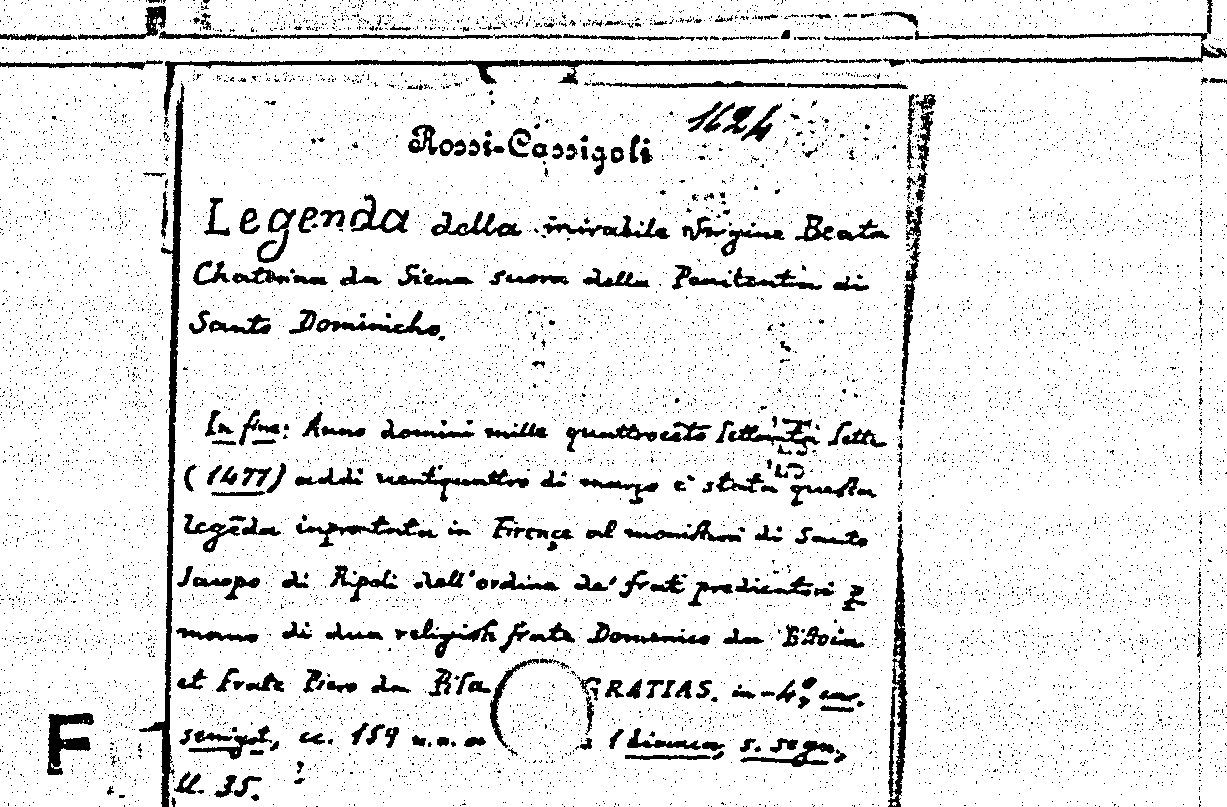 1624
Rossi-Cassigoli
Legenda della mirabile Vergine Beata
Chaterina da Siena suora della Penitentia di
Santo Dominicho.
In fine: Anno domini mille quattrocēto settanta sette
(1477) addi uentiquattro di março è stata questa
legēda inprontata in Firençe al monistero di Santo
Jacopo di Ripoli dell'ordine de' frati predicatori p
mano di dua religiosi frate Domenico da Pistoia
et Frate Piero da Pisa GRATIAS. in-4º, car.
semigot., cc. 159 n.n. 1 bianca, s. segn.,
ll. 35. ?
F